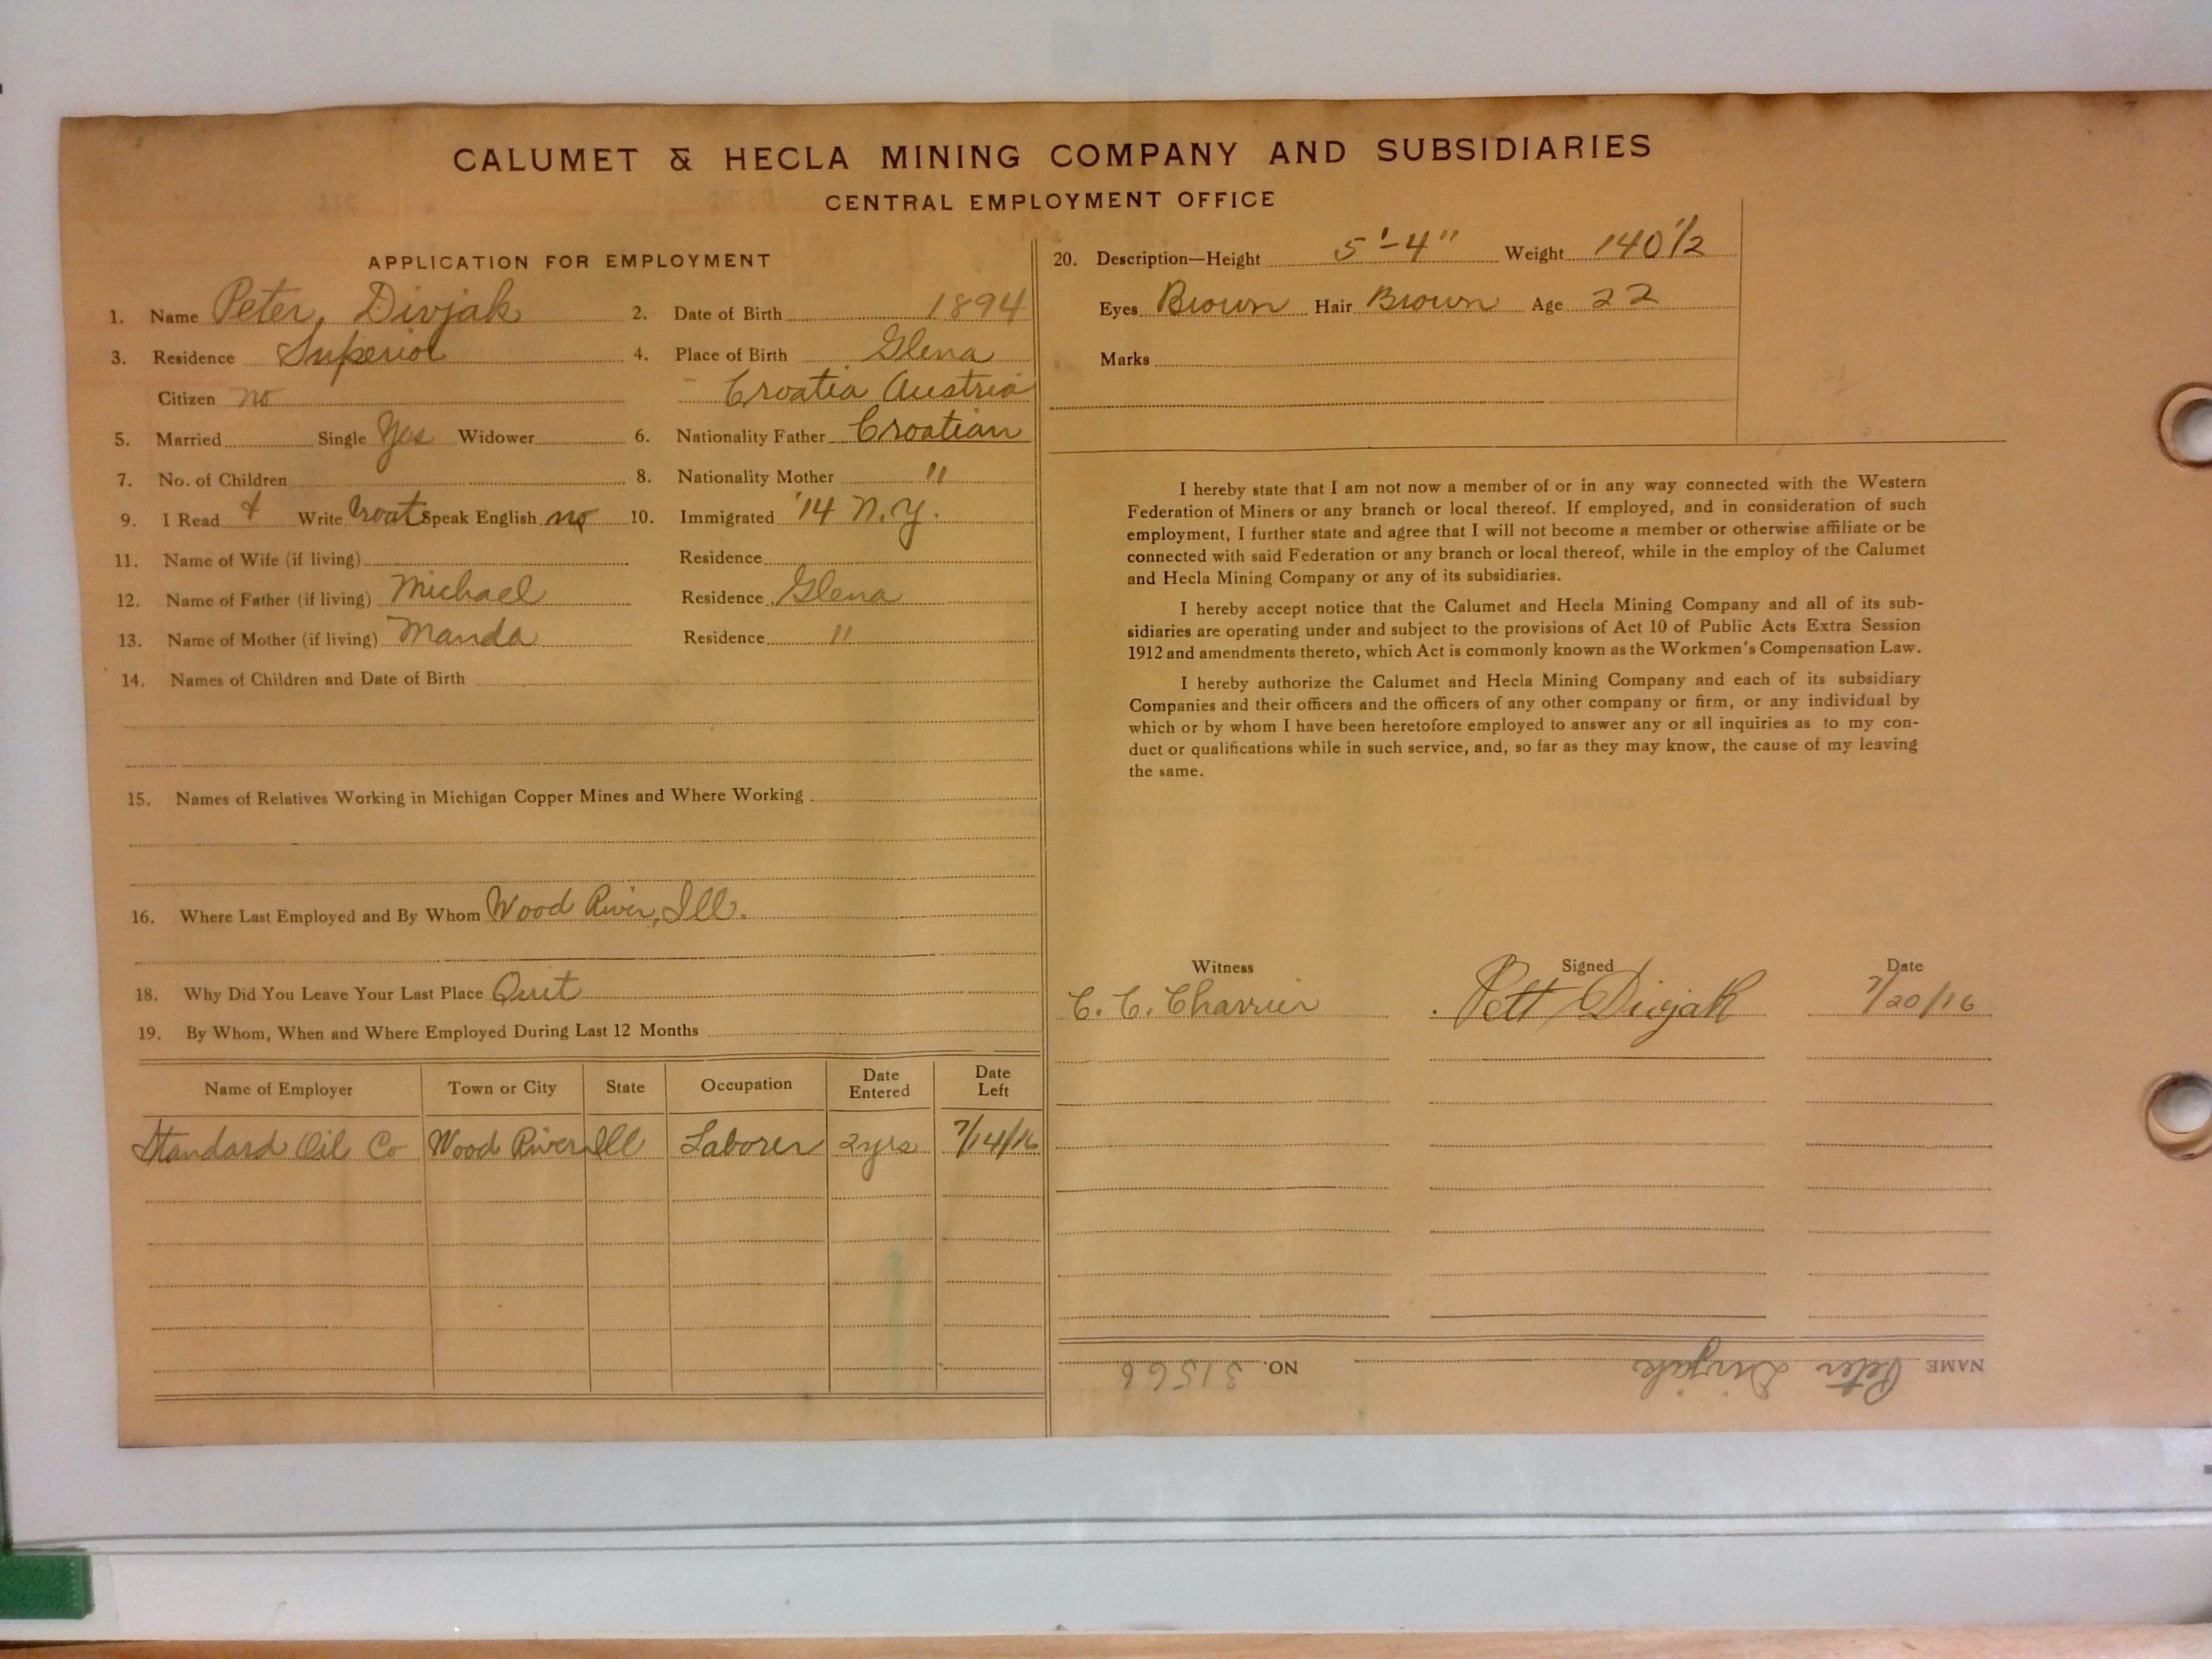 CALUMET & HECLA MINING COMPANY AND SUBSIDIARIES
CENTRAL EMPLOYMENT OFFICE
APPLICATION FOR EMPLOYMENT
1. Name Peter Divjak 2. Date of Birth 1894
3. Residence Superior 4. Place of Birth Glena
Citizen no Croatia Austria
5. Married Single Yes Widower 6. Nationality Father Croatian
7. No. of Children 8. Nationality Mother "
9. I Read & Write Croat Speak English no 10. Immigrated '14 N.Y.
11. Name of Wife (if living) Residence
12. Name of Father (if living) Michael Residence Glena
13. Name of Mother (if living) Manda Residence "
14. Names of Children and Date of Birth
15. Names of Relatives Working in Michigan Copper Mines and Where Working
16. Where Last Employed and By Whom Wood River, Ill.
18. Why Did You Leave Your Last Place Quit
19. By Whom, When and Where Employed During Last 12 Months
Name of Employer Town or City State Occupation Date Entered Date Left
Standard Oil Co Wood River Ill Laborer 2 yrs 7/14/16
20. Description—Height 5'-4" Weight 140 1/2
Eyes Brown Hair Brown Age 22
Marks
I hereby state that I am not now a member of or in any way connected with the Western
Federation of Miners or any branch or local thereof. If employed, and in consideration of such
employment, I further state and agree that I will not become a member or otherwise affiliate or be
connected with said Federation or any branch or local thereof, while in the employ of the Calumet
and Hecla Mining Company or any of its subsidiaries.
I hereby accept notice that the Calumet and Hecla Mining Company and all of its sub-
sidiaries are operating under and subject to the provisions of Act 10 of Public Acts Extra Session
1912 and amendments thereto, which Act is commonly known as the Workmen's Compensation Law.
I hereby authorize the Calumet and Hecla Mining Company and each of its subsidiary
Companies and their officers and the officers of any other company or firm, or any individual by
which or by whom I have been heretofore employed to answer any or all inquiries as to my con-
duct or qualifications while in such service, and, so far as they may know, the cause of my leaving
the same.
Witness Signed Date
C. C. Charrier Pett Divjak 7/20/16
NAME Peter Divjak NO. 31566